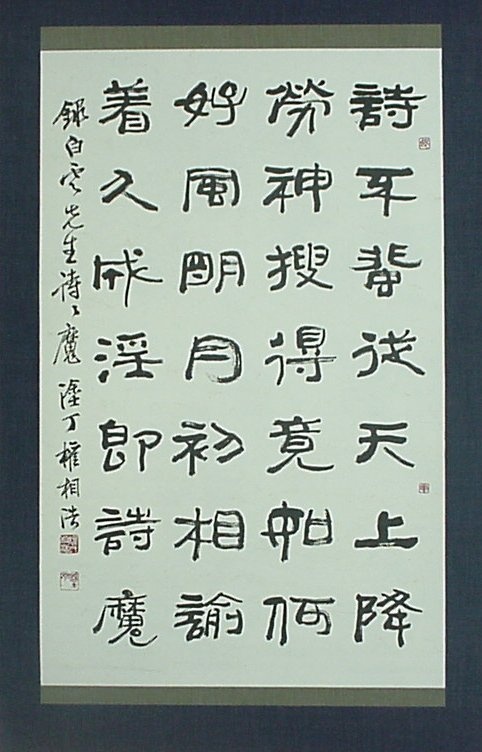 詩不蜚從天上降
勞神搜得竟如何
好風明月初相諭
着久成淫即詩魔
錄白雲先生詩〻魔 塗丁 權相浩